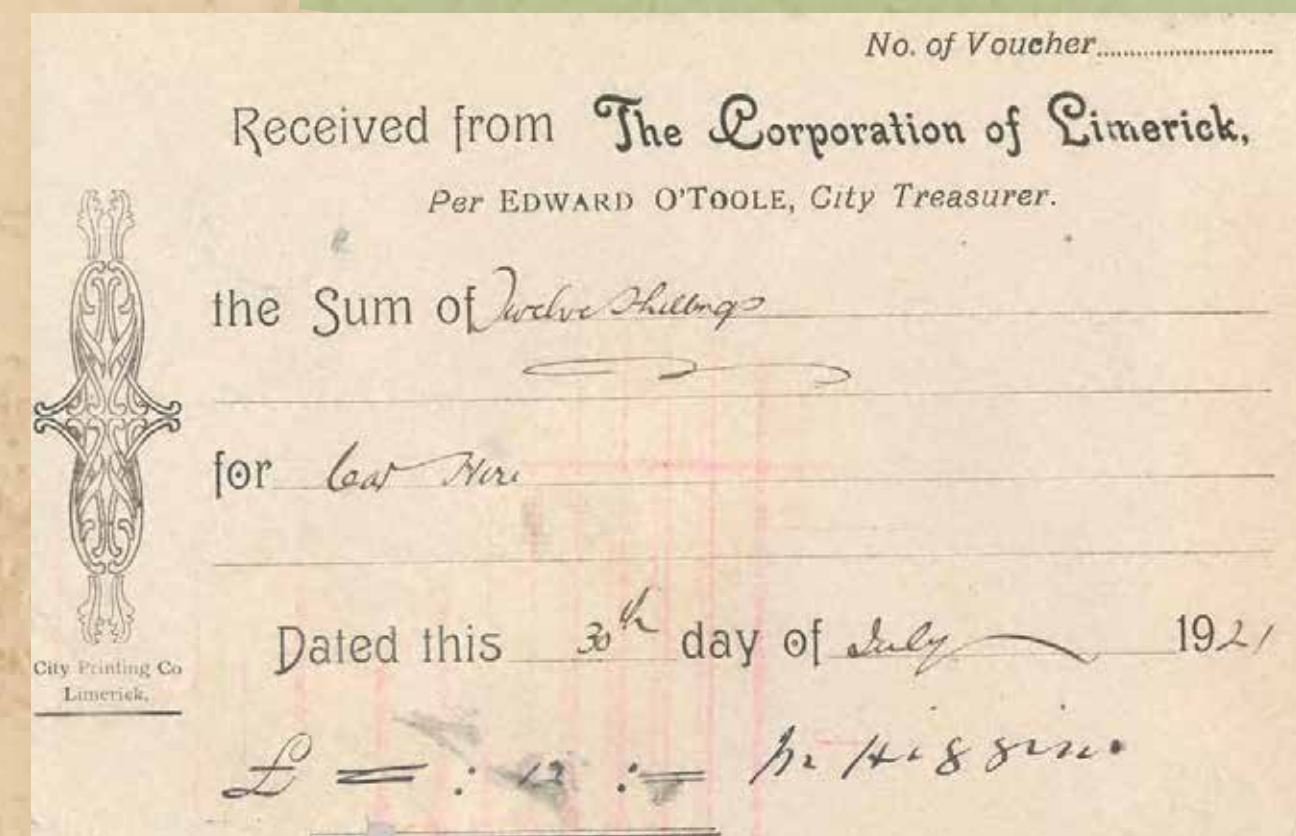 No. of Voucher
Received from The Corporation of Limerick,
Per EDWARD O'TOOLE, City Treasurer.
the Sum of Twelve Shillings
for Car Hire
Dated this 30th day of July 1921
City Printing Co
Limerick.
£ = : 12 : = M Higgins